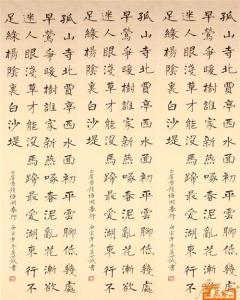 孤山寺北賈亭西水面初平雲腳低幾處
早鶯爭暖樹誰家新燕啄春泥亂花漸欲
迷人眼淺草才能沒馬蹄最愛湖東行不
足綠楊陰裏白沙堤
白居易錢塘湖春行 書
孤山寺北賈亭西水面初平雲腳低幾處
早鶯爭暖樹誰家新燕啄春泥亂花漸欲
迷人眼淺草才能沒馬蹄最愛湖東行不
足綠楊陰裏白沙堤
白居易錢塘湖春行 書
孤山寺北賈亭西水面初平雲腳低幾處
早鶯爭暖樹誰家新燕啄春泥亂花漸欲
迷人眼淺草才能沒馬蹄最愛湖東行不
足綠楊陰裏白沙堤
白居易錢塘湖春行 書